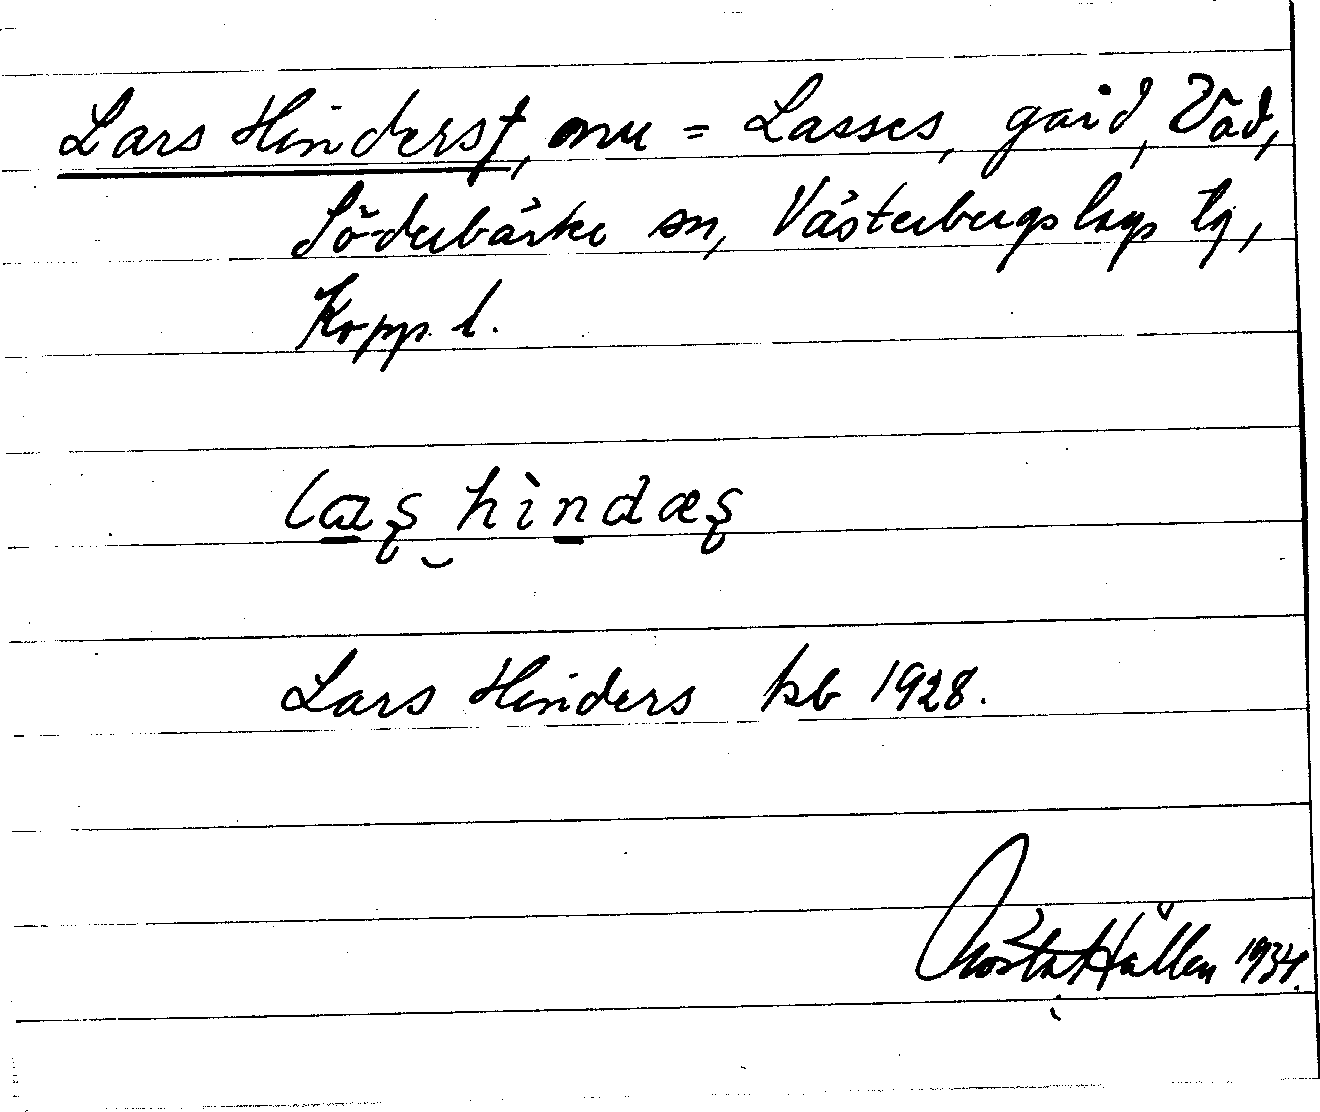 Lars Hinders†, nu = Lasses, gård, Vad,
Söderbärke sn, Västerbergslags tg,
Kopp. l.
laş hìndæş
Lars Hinders kb 1928.
Gösta Hällen 1934.